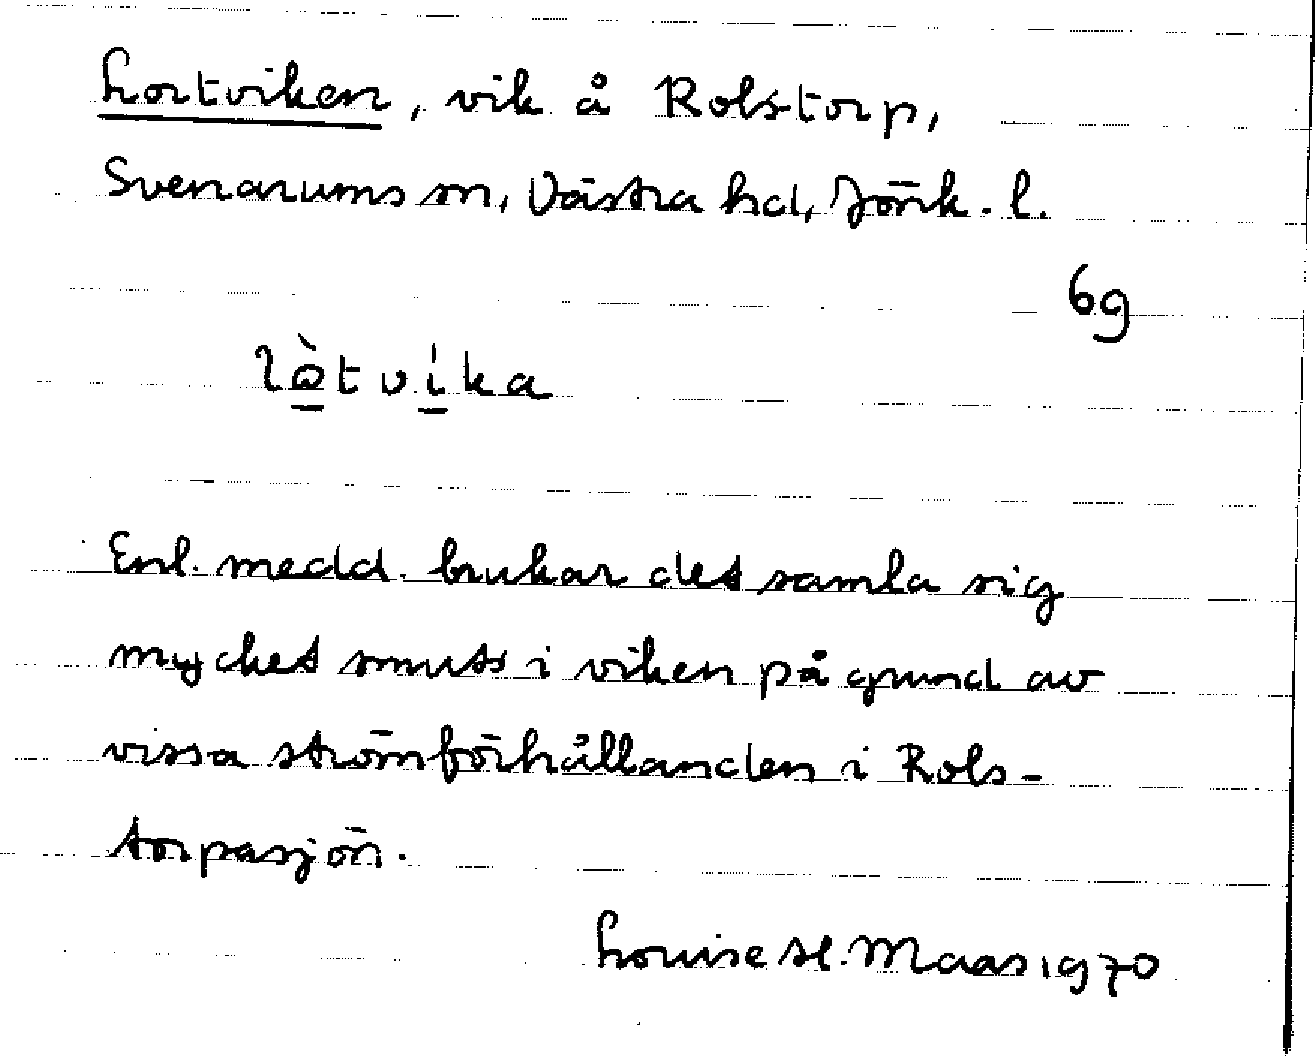 Lortviken, vik å Rolstorp,
Svenarums sn, Västra hd, Jönk. l.
69
lòtvika
Enl. medd. brukar det samla sig
mycket smuts i viken på grund av
vissa strömförhållanden i Rols-
torpasjön.
Louise H. Maas 1970